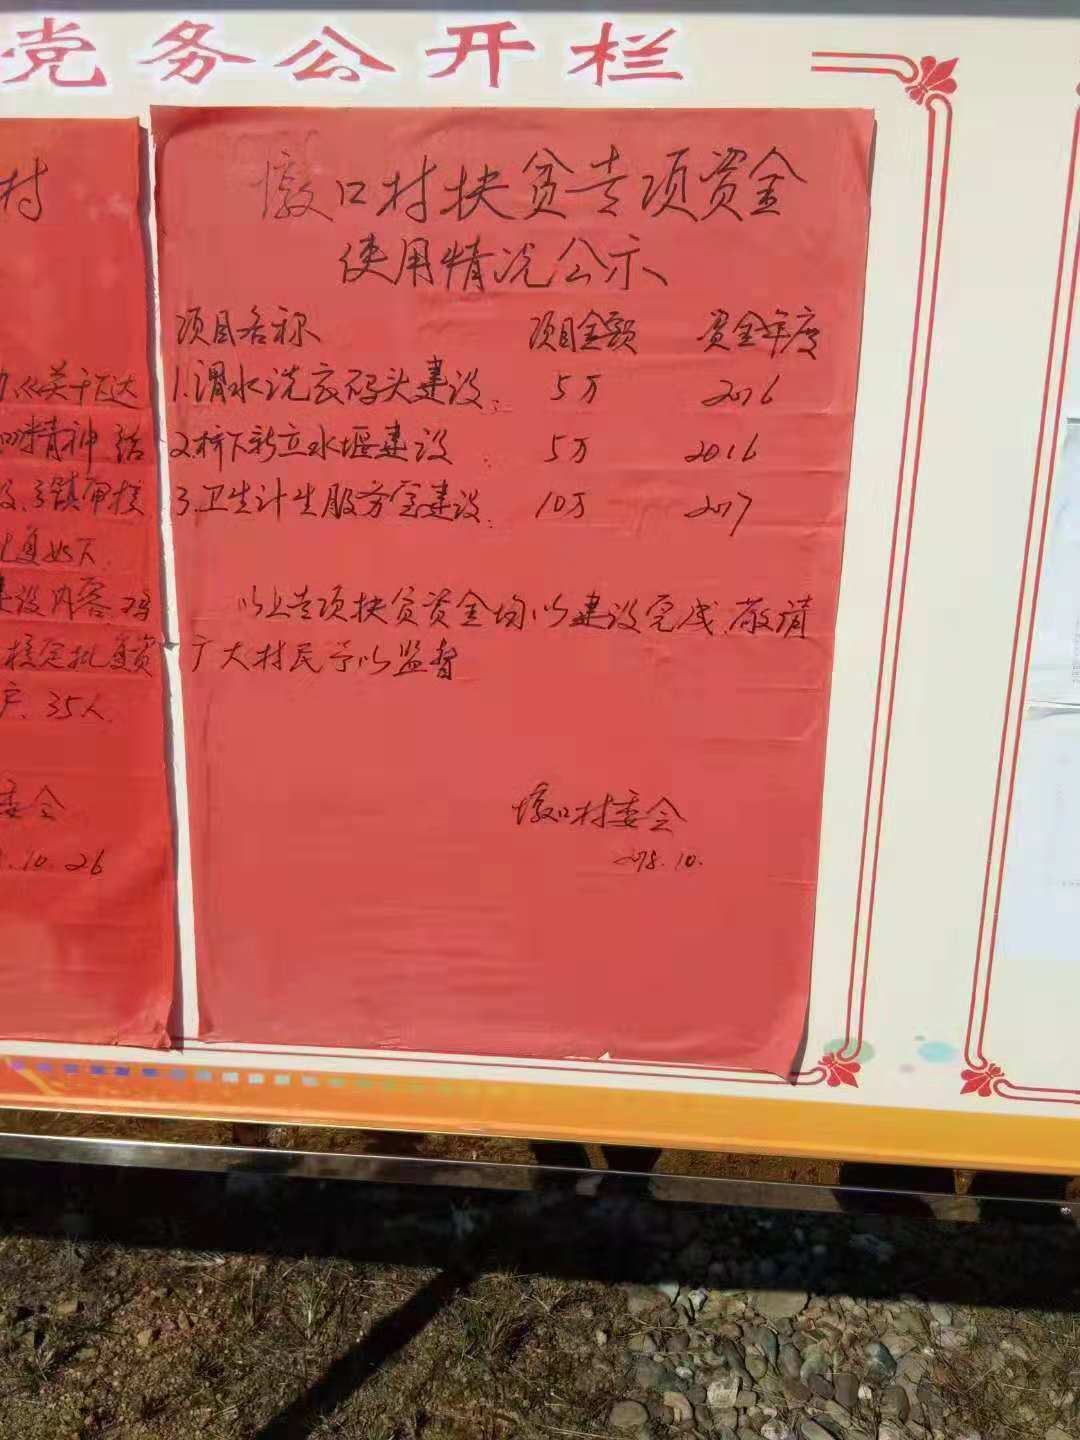 党务公开栏
村
墩口村扶贫专项资金
使用情况公示
项目名称 项目金额 资金年度
1.渭水洗衣码头建设: 5万 2016
2.桥下新立水堰建设: 5万 2016
3.卫生计生服务室建设: 10万 2017
以上专项扶贫资金均以建设完成,敬请
广大村民予以监督
墩口村委会
2018.10.
《关于下达
精神 结
镇审核
复如下.
建设内容
核定批复资
户、35人.
委会
.10.26